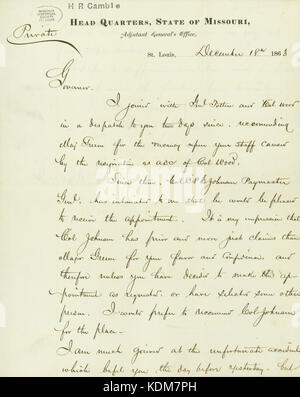 H R Gamble
Private
HEAD QUARTERS, STATE OF MISSOURI,
Adjutant General's Office,
St. Louis, December 18th 1863
Governor
I joined with and Col Wood
in a dispatch to you two days since, recommending
Maj Green for the vacancy upon your staff caused
by the resignation as ADC of Col Wood.
Since then, Col Johnson Paymaster
Genl. has intimated to me that he would be pleased
to receive the appointment. It is my impression that
Col Johnson has prior and more just claims than
Major Green for your favor and confidence and
therefore unless you have decided to make the ap-
pointment as requested or have selected some other
person. I would prefer to recommend Col Johnson
for the place—
I am much grieved at the unfortunate accident
which befel you the day before yesterday, but
alamy
Image ID: KDM7PH
www.alamy.com